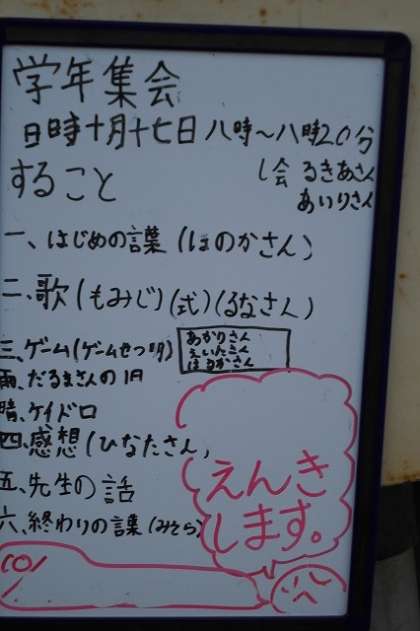 学年集会
日時十月十七日八時〜八時20分
すること
し会 るきあさん
あいりさん
一、はじめの言葉(ほのかさん)
二、歌(もみじ)(式)(るなさん)
三、ゲーム(ゲームせつ明)
あかりさん
えいたさん
はるかさん
雨、だるまさんの1日
晴、ケイドロ
四、感想(ひなたさん)
五、先生の話
六、終わりの言葉(みそら)
えんき
します。